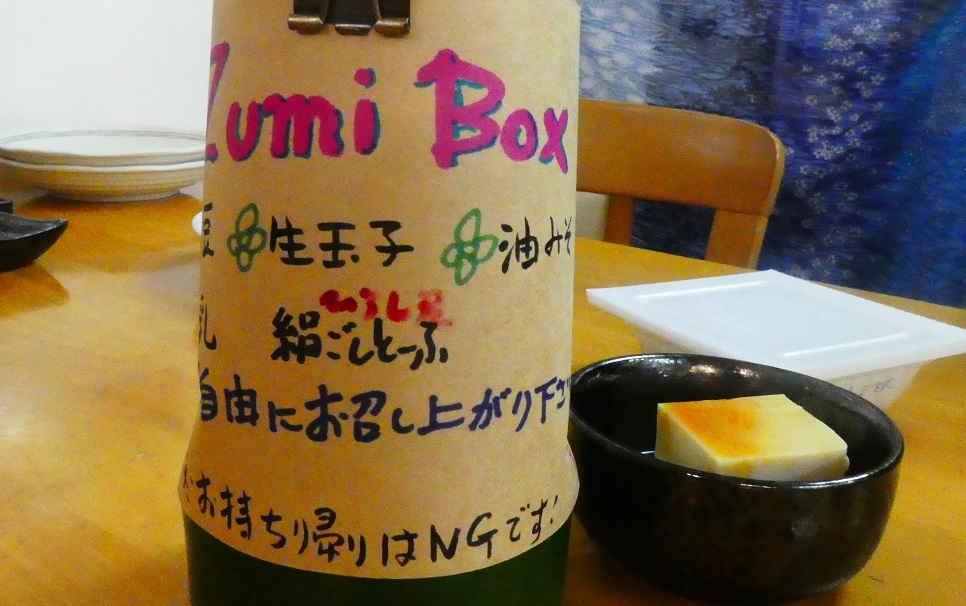 Zumi Box
豆 生玉子 油みそ
乳 絹ごしとーふ
自由にお召し上がり下さ
お持ち帰りはNGです!